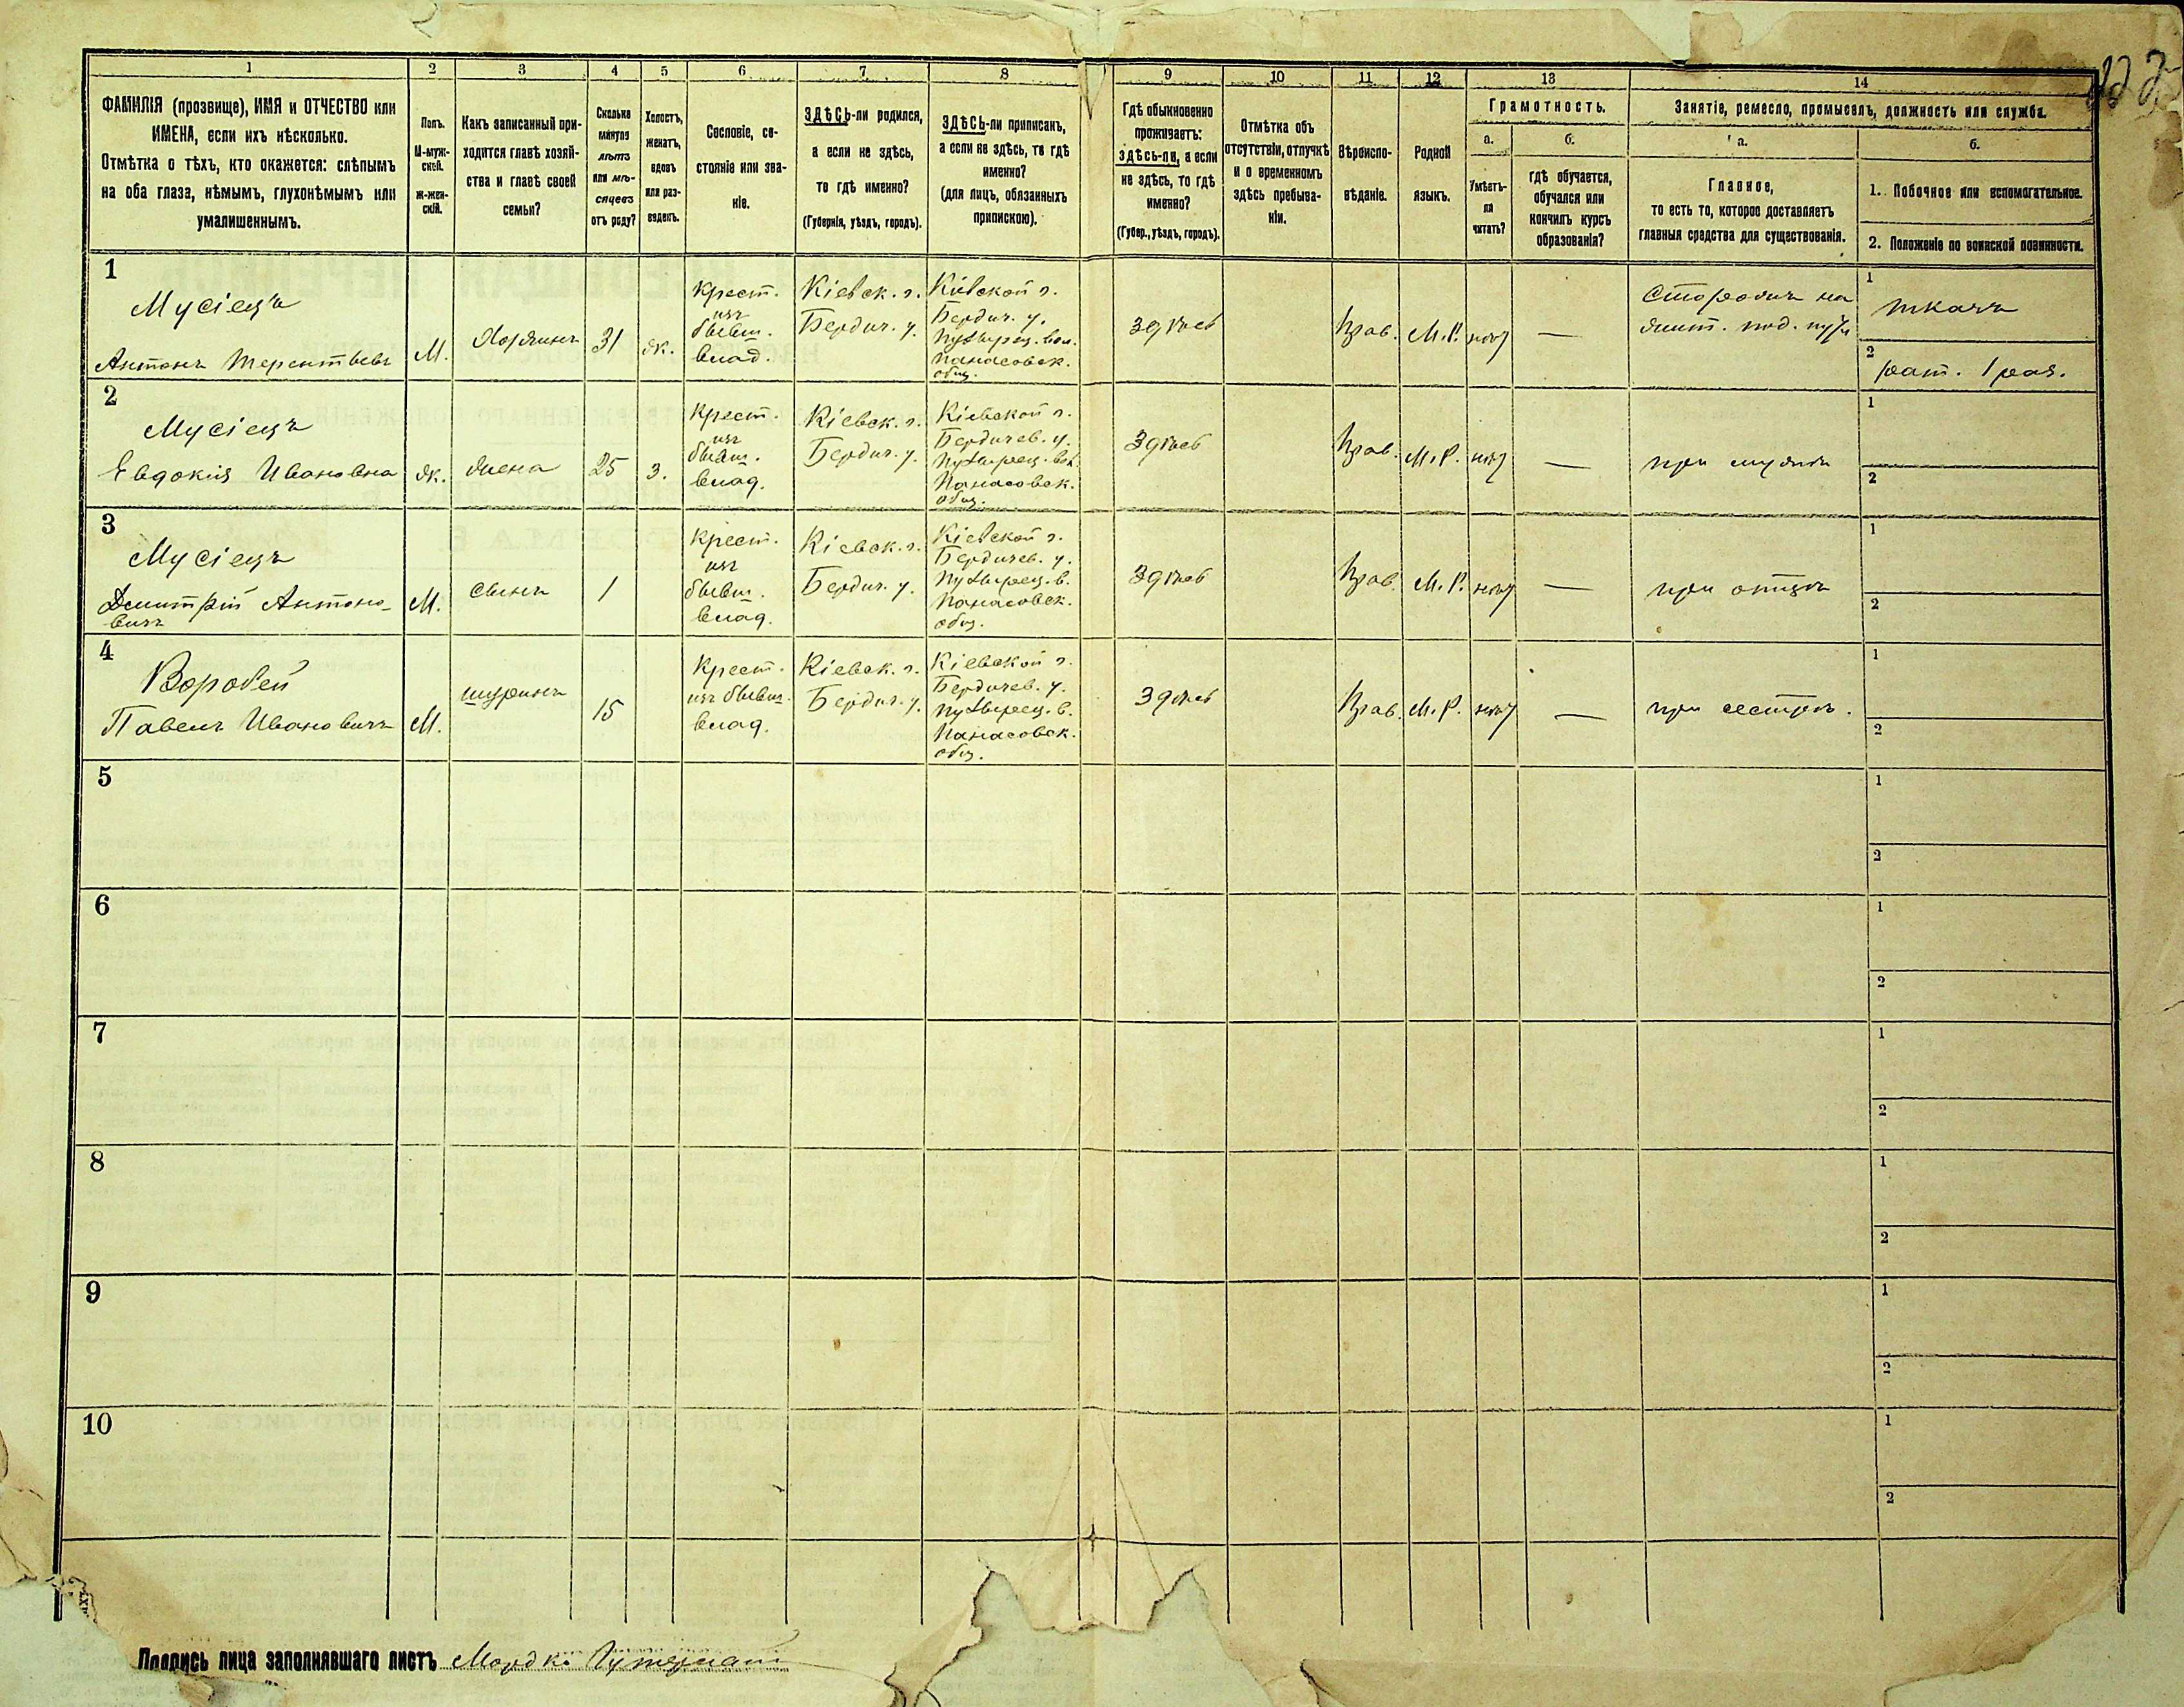 1 2 3 4 5 6 7 8 9 10 11 12 13 14
ФАМИЛІЯ (прозвище), ИМЯ и ОТЧЕСТВО или
ИМЕНА, если ихъ нѣсколько.
Отмѣтка о тѣхъ, кто окажется: слѣпымъ
на оба глаза, нѣмымъ, глухонѣмымъ или
умалишеннымъ.
Полъ.
М-муж-
ской.
Ж-жен-
скій.
Какъ записанный при-
ходится главѣ хозяй-
ства и главѣ своей
семьи?
Сколько
минуло
лѣтъ
или мѣ-
сяцевъ
отъ роду?
Холостъ,
женатъ,
вдовъ
или раз-
веденъ.
Сословіе, со-
стояніе или зва-
ніе.
ЗДѢСЬ-ли родился,
а если не здѣсь,
то гдѣ именно?
(Губернія, уѣздъ, городъ).
ЗДѢСЬ-ли приписанъ,
а если не здѣсь, то гдѣ
именно?
(для лицъ, обязанныхъ
припискою).
Гдѣ обыкновенно
проживаетъ:
здѣсь-ли, а если
не здѣсь, то гдѣ
именно?
(Губер., уѣздъ, городъ).
Отмѣтка объ
отсутствіи, отлучкѣ
и о временномъ
здѣсь пребыва-
ніи.
Вѣроиспо-
вѣданіе.
Родной
языкъ.
Грамотность.
а.
Умѣетъ-
ли
читать?
б.
гдѣ обучается,
обучался или
кончилъ курсъ
образованія?
Занятіе, ремесло, промыселъ, должность или служба.
а.
Главное,
то есть то, которое доставляетъ
главныя средства для существованія.
б.
1. Побочное или вспомогательное.
2. Положеніе по воинской повинности.
1
Мусіецъ
Антонъ Терентьевъ
М.
Хозяинъ
31
ж.
Крест.
изъ
бывш.
влад.
Кіевск. г.
Бердич. у.
Кіевской г.
Бердич. у.
вол.
Панасовск.
общ.
Здѣсь
Прав.
М. Р.
нѣтъ
—
Сторожъ на
1
ткачъ
2
рат. 1 раз.
2
Мусіецъ
Евдокія Ивановна
Ж.
жена
25
з.
Крест.
изъ
бывш.
влад.
Кіевск. г.
Бердич. у.
Кіевской г.
Бердичев. у.
вол.
Панасовск.
общ.
Здѣсь
Прав.
М. Р.
нѣтъ
—
при мужѣ
1
2
3
Мусіецъ
Дмитрій Антоно-
вичъ
М.
сынъ
1
Крест.
изъ
бывш.
влад.
Кіевск. г.
Бердич. у.
Кіевской г.
Бердичев. у.
в.
Панасовск.
общ.
Здѣсь
Прав.
М. Р.
нѣтъ
—
при отцѣ
1
2
4
Воробей
Павелъ Ивановичъ
М.
шуринъ
15
Крест.
изъ бывш.
влад.
Кіевск. г.
Бердич. у.
Кіевской г.
Бердичев. у.
в.
Панасовск.
общ.
Здѣсь
Прав.
М. Р.
нѣтъ
—
при сестрѣ.
1
2
5
1
2
6
1
2
7
1
2
8
1
2
9
1
2
10
1
2
Подпись лица заполнявшаго листъ Мордко